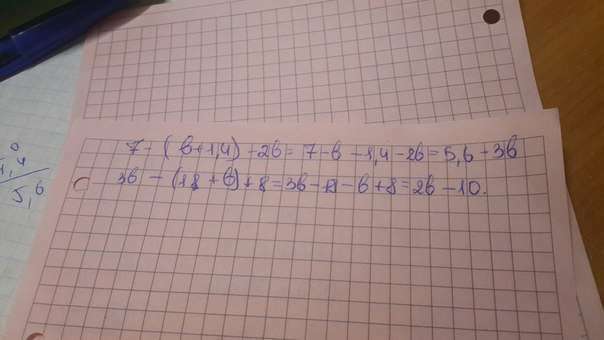 7 - (b+1,4) - 2b = 7-b-1,4-2b = 5,6-3b
3b - (18 + b) + 8 = 3b - 18 - b + 8 = 2b - 10.
5,6